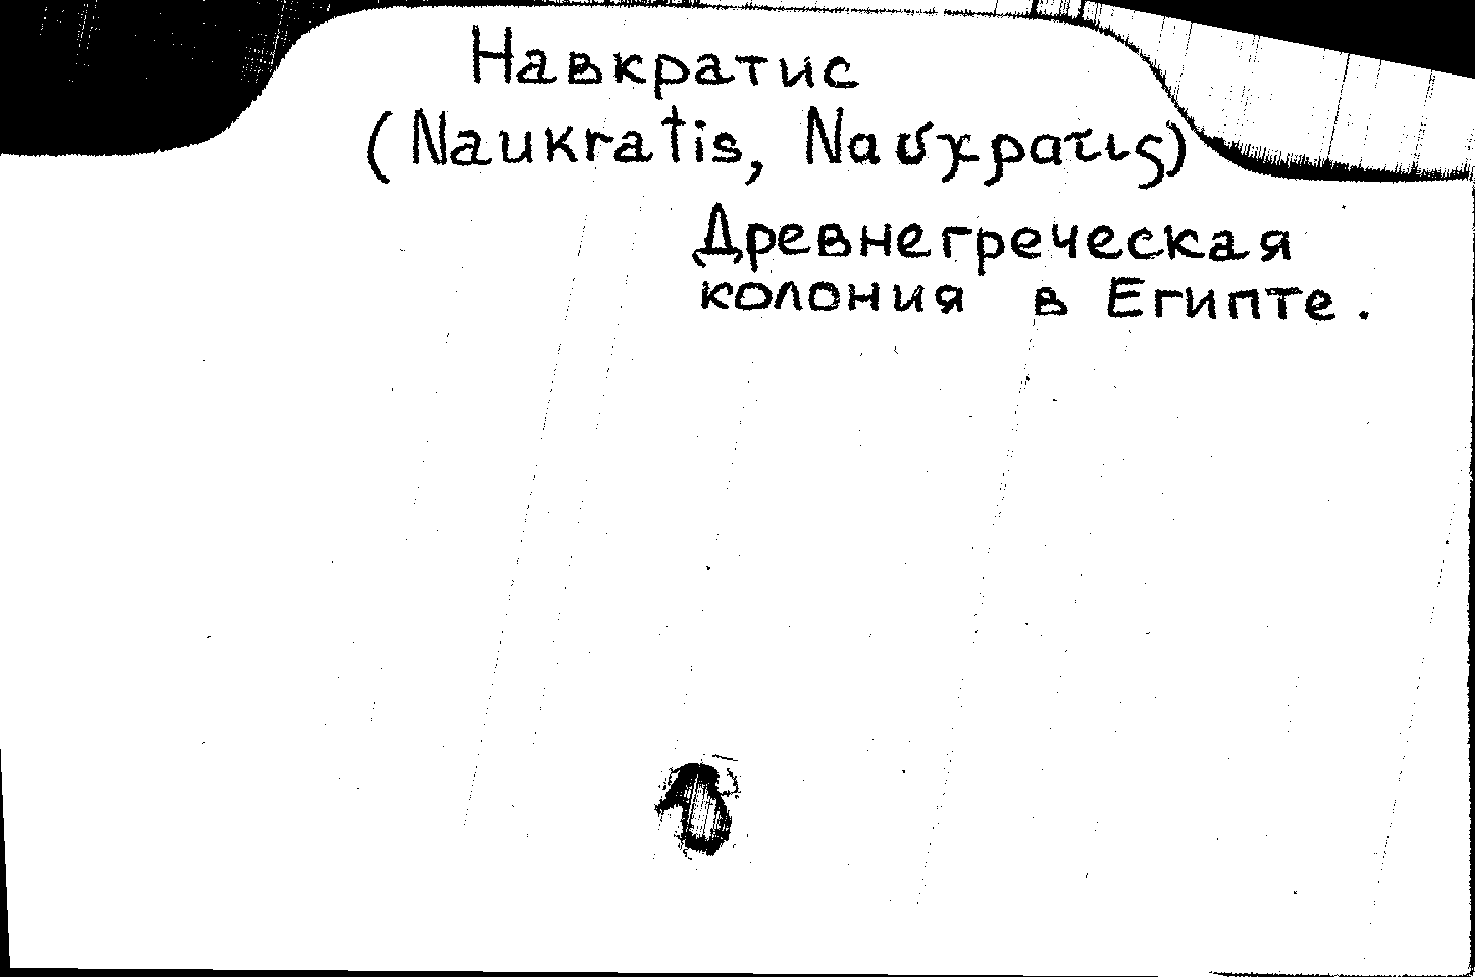 Навкратис
(Naukratis, Ναύκρατις)
Древнегреческая
колония в Египте.